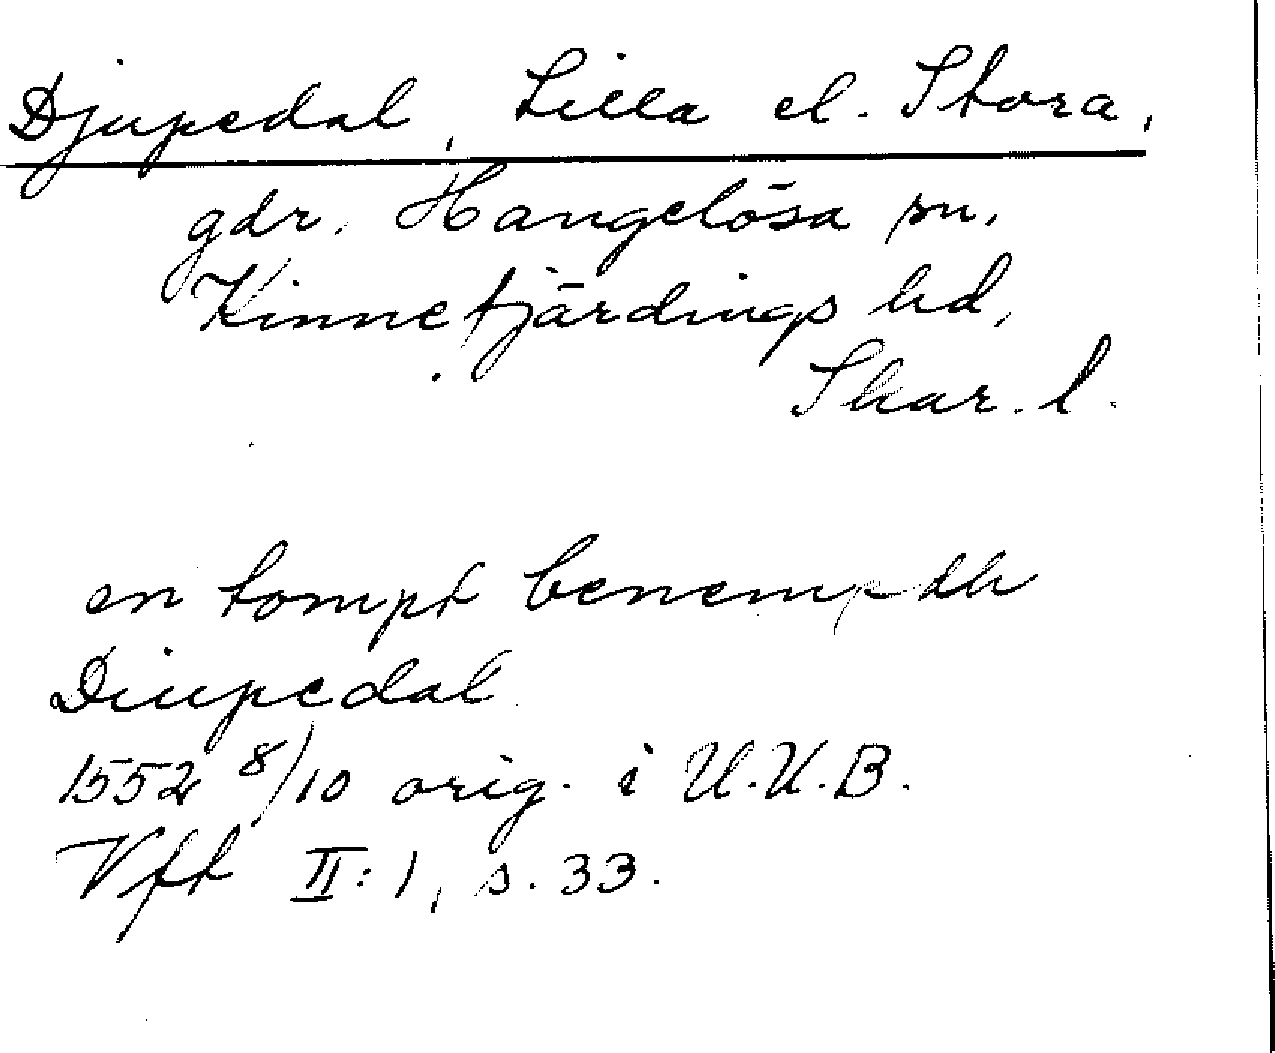 Djupedal, Lilla el. Stora,
gdr, Hangelösa sn,
Kinnefjärdings hd,
Skar. l.
en tompt benempdh
Diupedal
1552 8/10 orig. i U.U.B.
Vft II:1, s. 33.